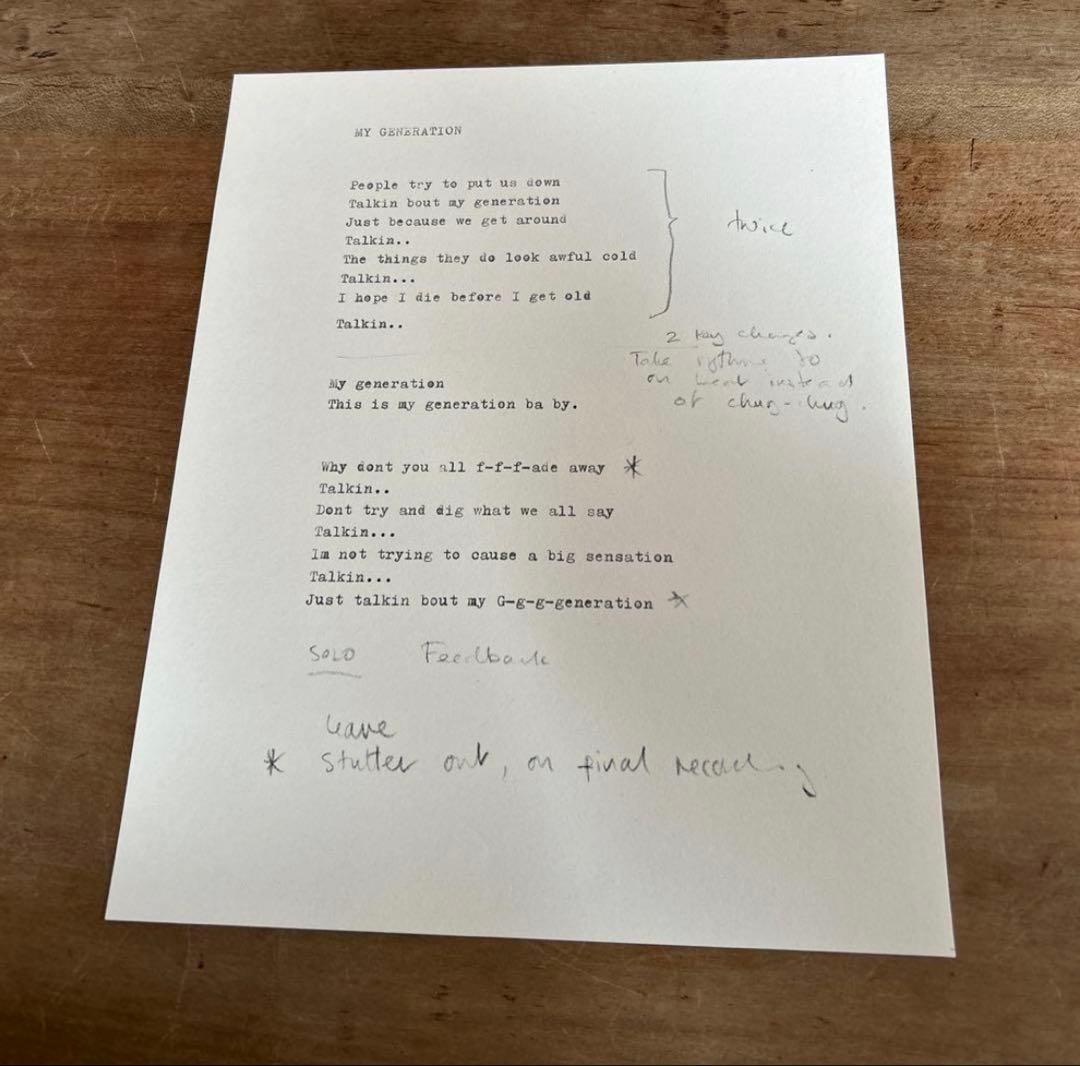 MY GENERATION
People try to put us down
Talkin bout my generation
Just because we get around
Talkin..
The things they do look awful cold
Talkin...
I hope I die before I get old
Talkin..
twice
2 key changes.
Take rythm to
on beat instead
of chug-chug.
My generation
This is my generation ba by.
Why dont you all f-f-f-ade away *
Talkin..
Dont try and dig what we all say
Talkin...
Im not trying to cause a big sensation
Talkin...
Just talkin bout my G-g-g-generation *
SOLO Feedback
leave
* stutter out, on final recording